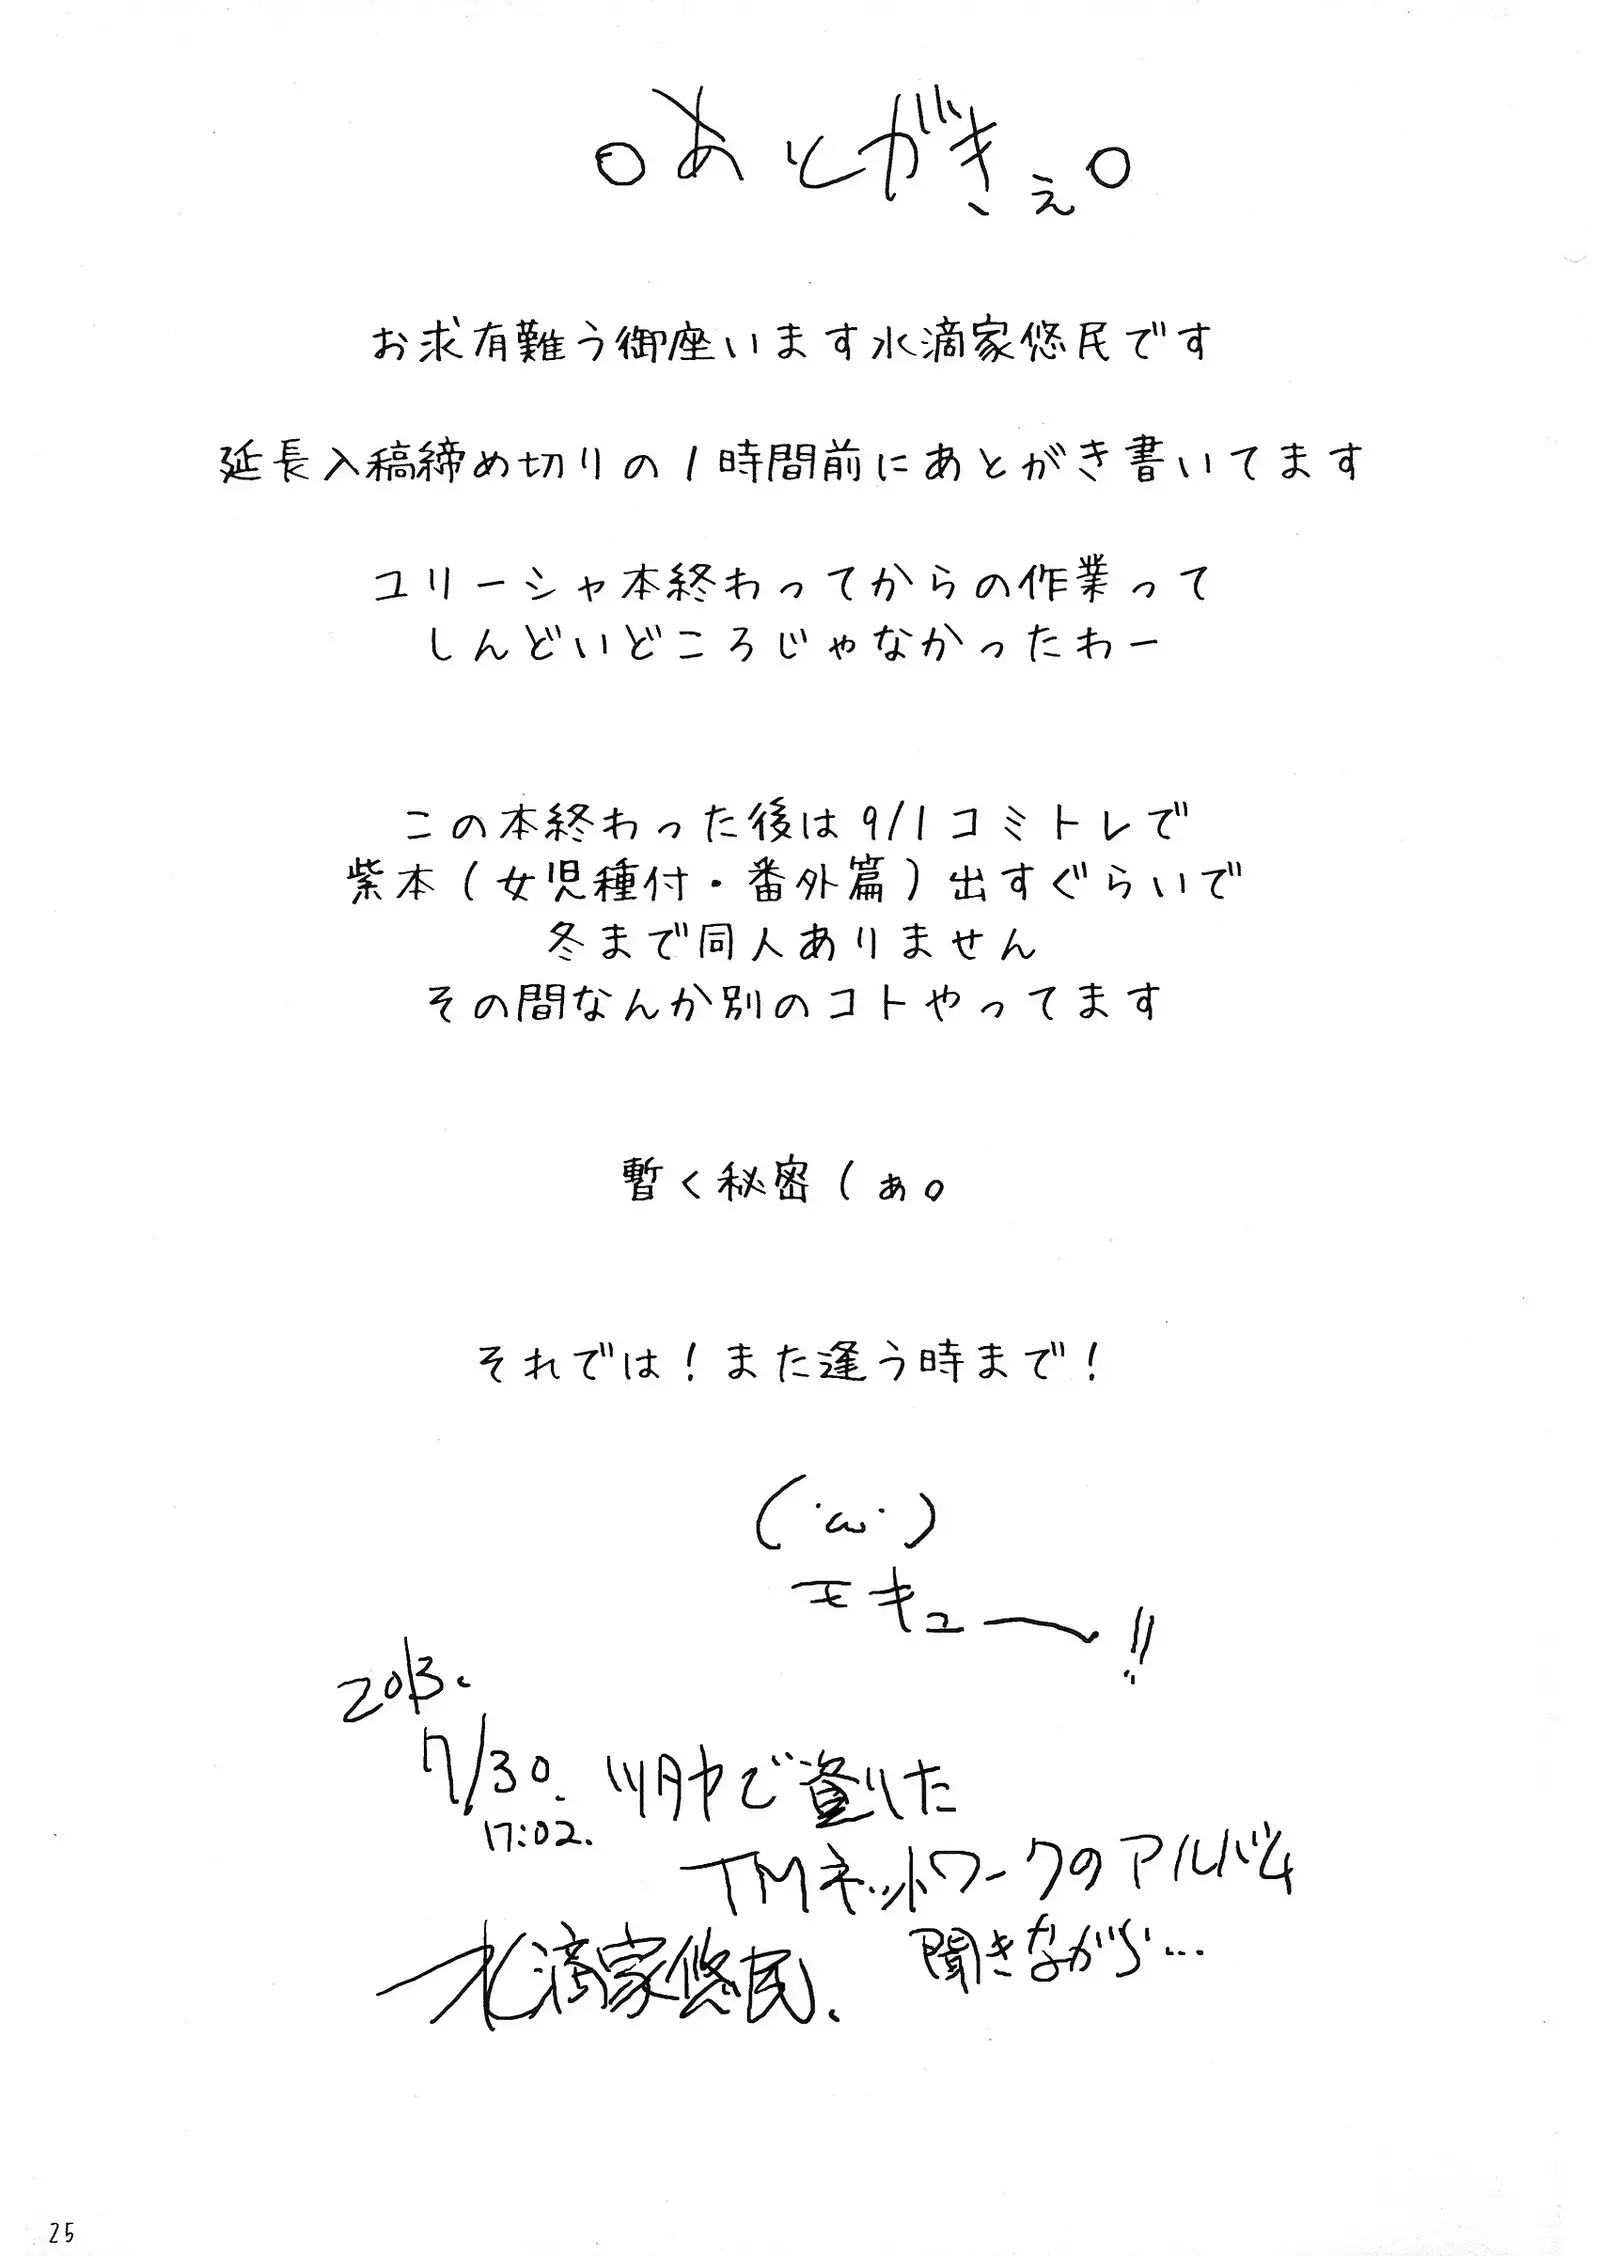 ○あとがきぇ○
お求有難う御座います水滴家悠民です
延長入稿締め切りの1時間前にあとがき書いてます
ユリーシャ本終わってからの作業って
しんどいどころじゃなかったわー
この本終わった後は9/1コミトレで
紫本(女児種付・番外篇)出すぐらいで
冬まで同人ありません
その間なんか別のコトやってます
暫く秘密(ぁ。
それでは!また逢う時まで!
(・ω・)
モキュー!!
2013.
7/30.
17:02.
TMネットワークのアルバム
聞きながら…
水滴家悠民.
25